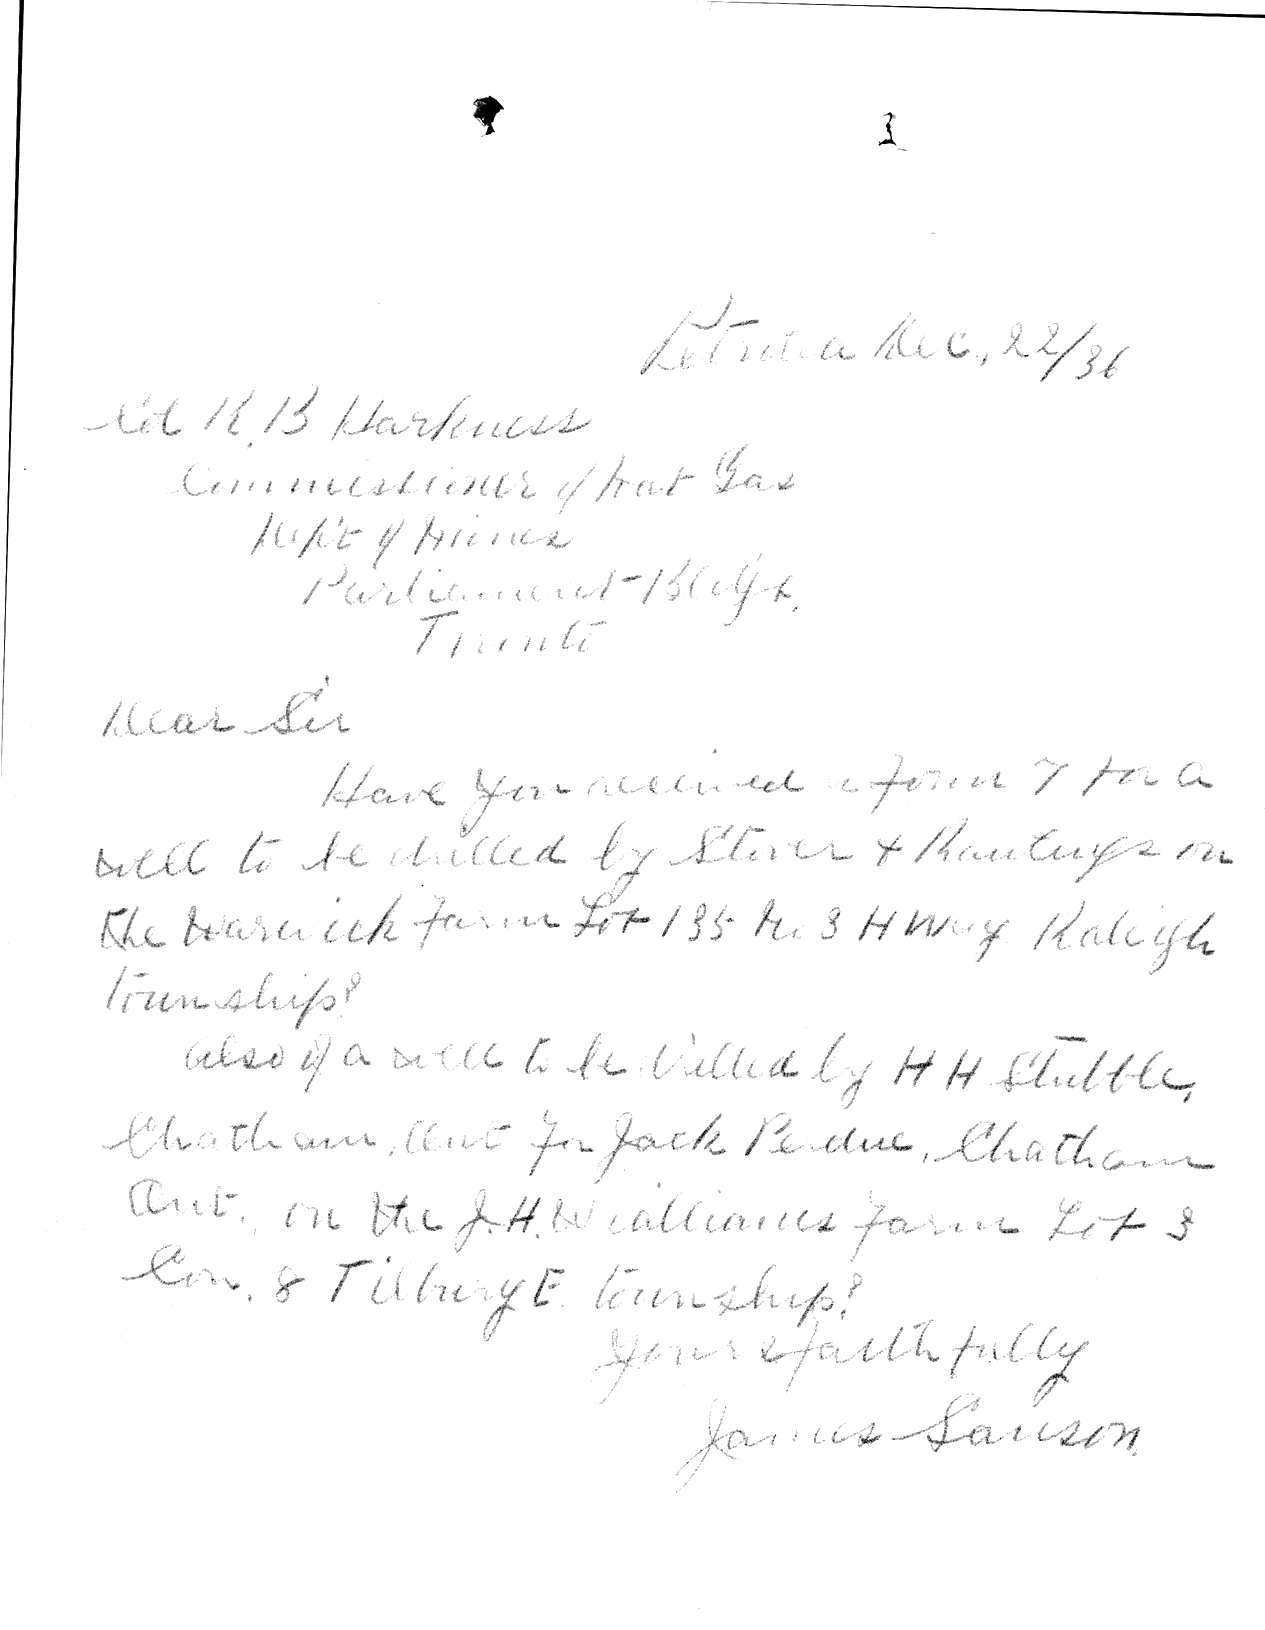 Petrolia Dec., 22/36
Col R. B Harkness
Commissioner of Nat Gas
Dep't of Mines
Parliament Bldgs.
Toronto
Dear Sir
Have you received a form 7 for a
well to be drilled by Stover & Rawlings on
the Warwick farm Lot 195 No 3 H Way Raleigh
township?
also of a well to be drilled by H H Stubble,
Chatham, Ont for Jack Perdue, Chatham
Ont., on the J. H. Williams farm Lot 3
Con. 8 Tilbury E. township?
Yours faithfully
James Sanson.